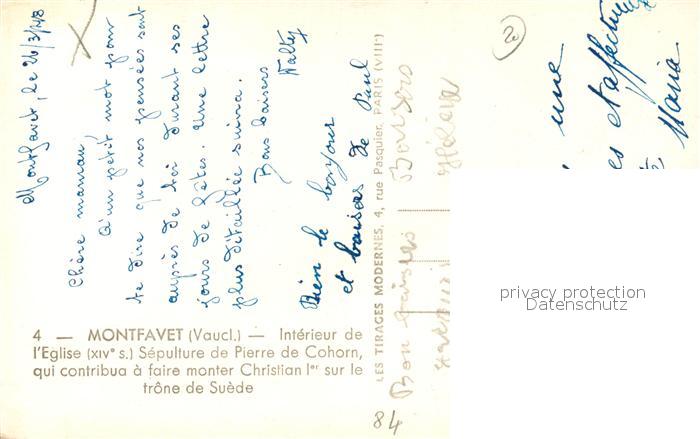 Montfavet, le 26/3/48
Chère maman,
Q'un petit mot pour
te dire que nos pensées sont
auprès de toi durant ces
jours de fêtes. Une lettre
plus détaillée suivra.
Bons baisers
Bien le bonjour
et baisers de Paul
4 — MONTFAVET (Vaucl.) — Intérieur de
l'Eglise (XIVe s.) Sépulture de Pierre de Cohorn,
qui contribua à faire monter Christian Ier sur le
trône de Suède
LES TIRAGES MODERNES, 4, rue Pasquier, PARIS (VIIIe)
Bon baisers
Hélène
84
une
es et affectu
Maria
privacy protection
Datenschutz